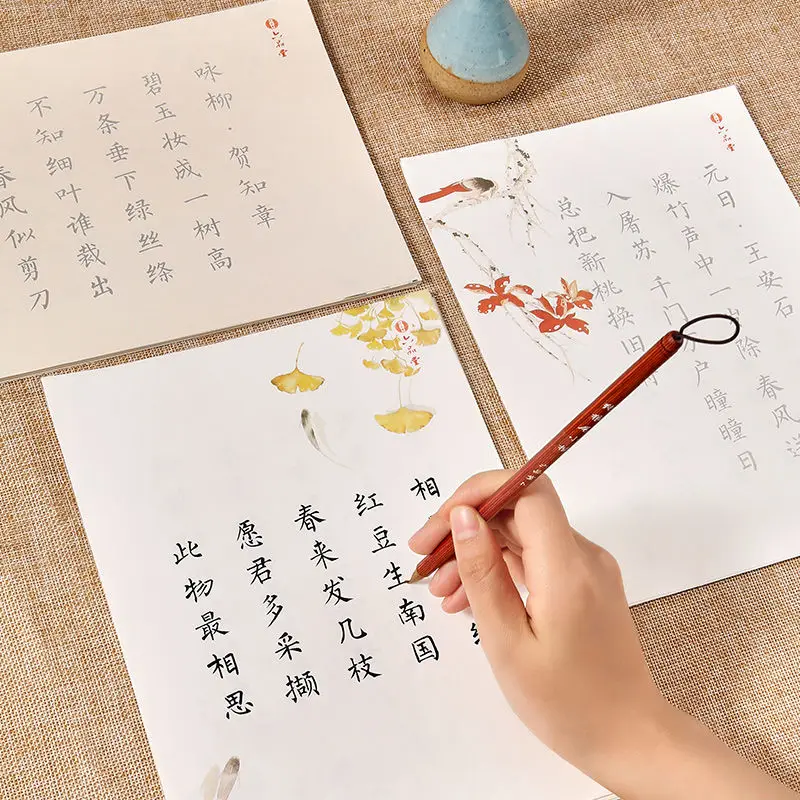 六品堂
咏柳·贺知章
碧玉妆成一树高
万条垂下绿丝绦
不知细叶谁裁出
春风似剪刀
六品堂
元日·王安石
爆竹声中一除 春风送
入屠苏 千门户曈曈日
总把新桃换旧
六品堂
相
红豆生南国
春来发几枝
愿君多采撷
此物最相思